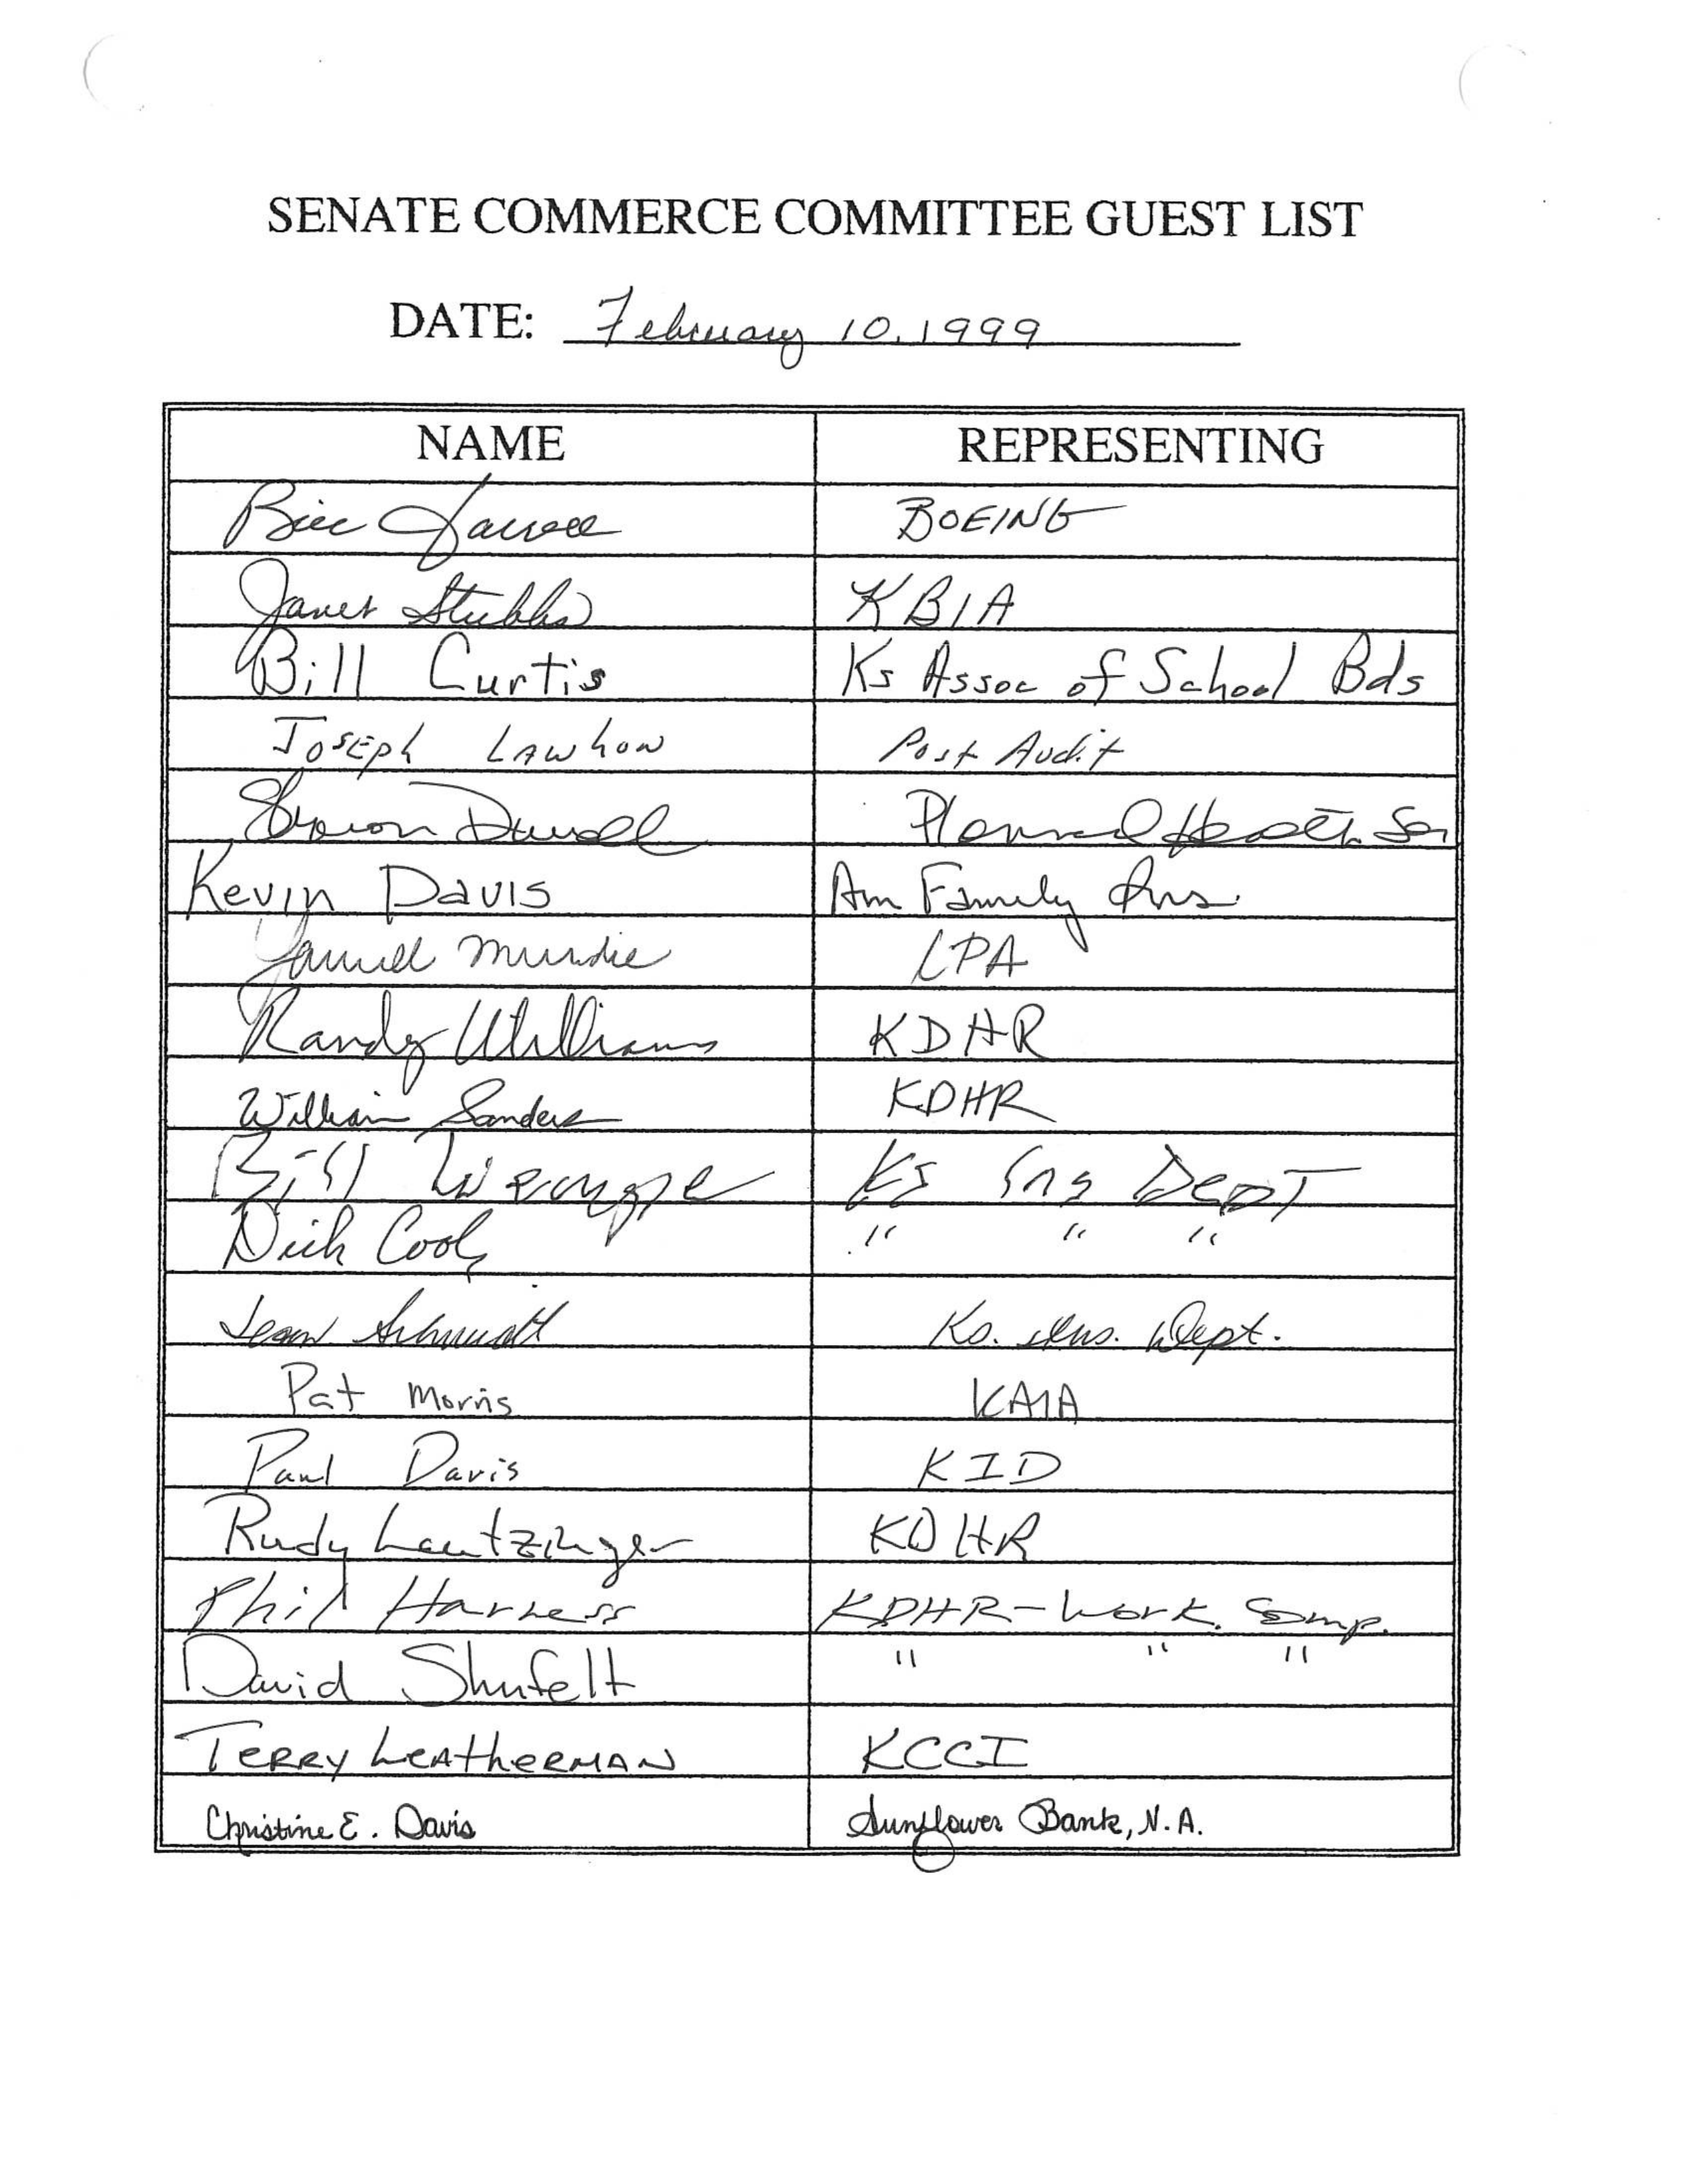 SENATE COMMERCE COMMITTEE GUEST LIST
DATE: February 10, 1999
NAME REPRESENTING
BOEING
Janet Stubbs KBIA
Bill Curtis Ks Assoc of School Bds
Joseph Lawhon Post Audit
Kevin Davis Am Family Ins.
LPA
Randy Williams KDHR
William Sanders KDHR
Bill Ks Ins Dept
Dick Cook " " "
Ks. Ins. Dept.
Pat Morris KAIA
Paul Davis KID
Rudy Leutzinger KDHR
Phil Harness KDHR-Work. Comp.
David Shufelt " " "
Terry Leatherman KCCI
Christine E. Davis Sunflower Bank, N.A.